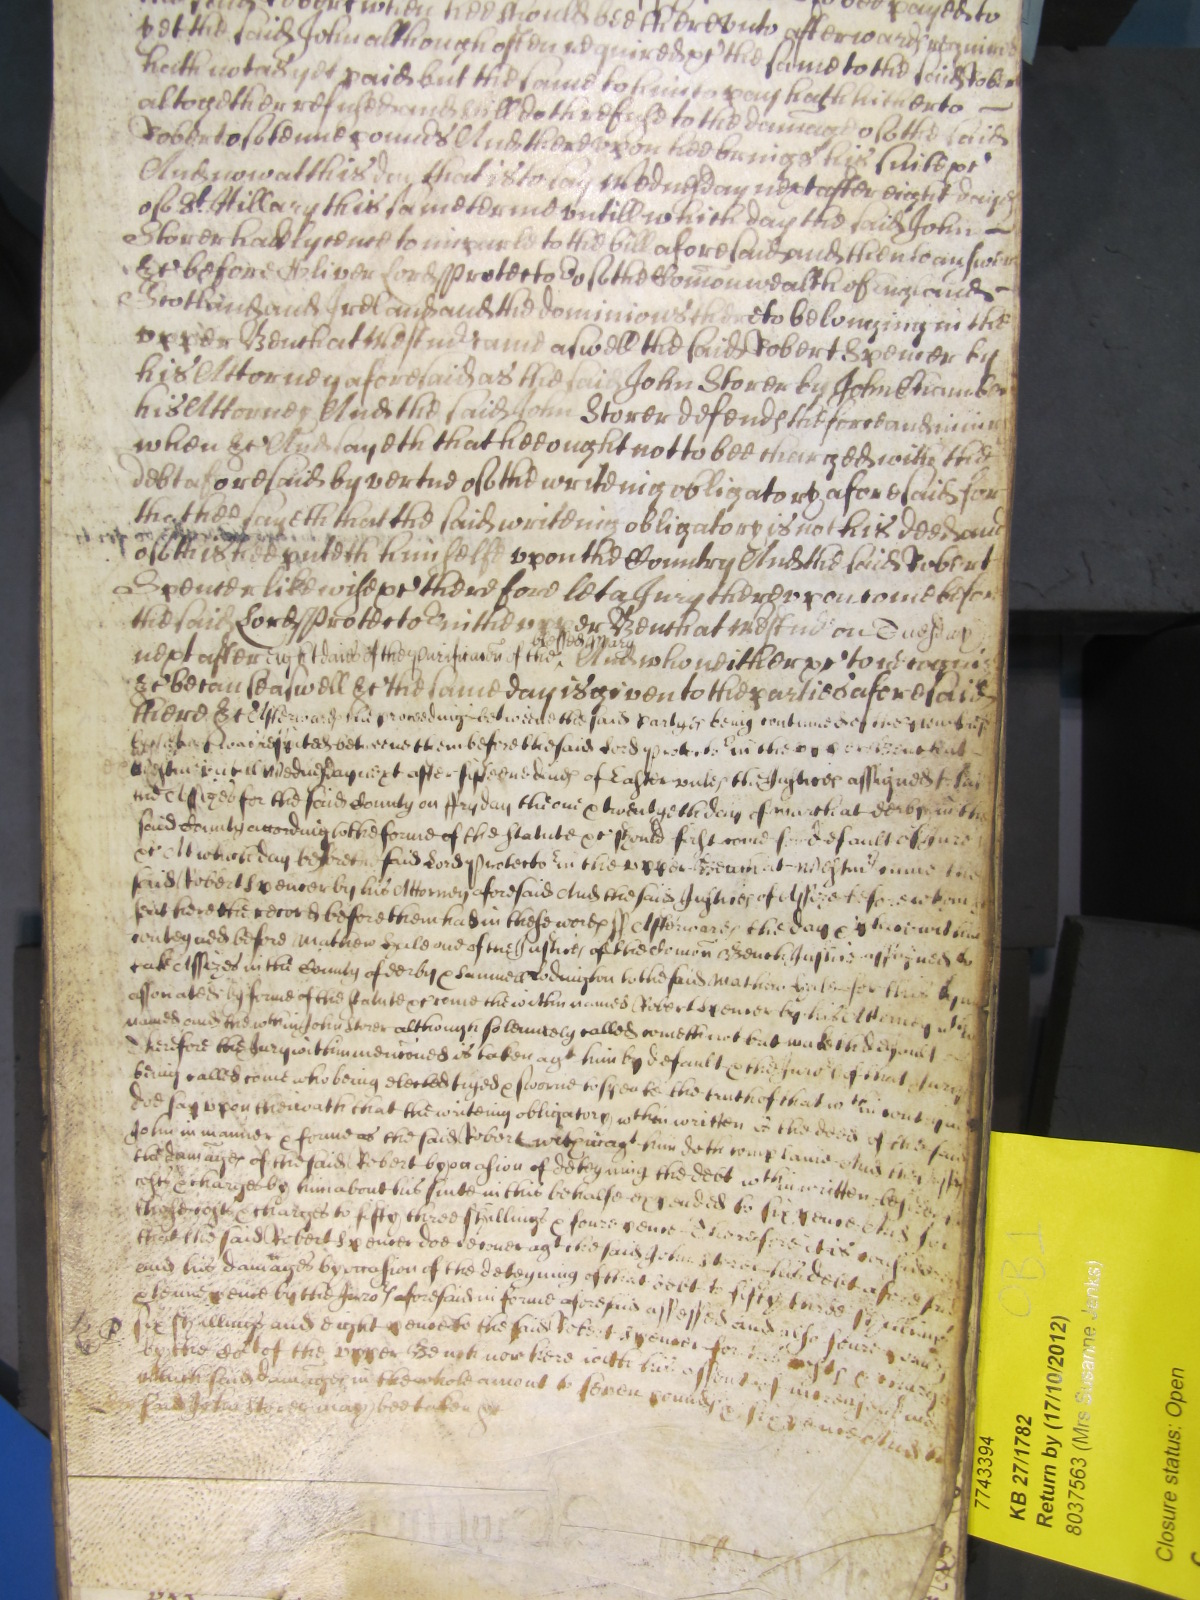 the said Robert when hee should bee thereunto afterwards required
yet the said John although often required &c the same to the said Robert
hath not as yet paid but the same to him to pay hath hitherto
altogether refused and still doth refuse to the damage of the said
Robert of tenne pounds And thereupon hee brings his suite &c
And now at this day that is to say Wednesday next after eight dayes
of St Hillary this same terme untill which day the said John
Storer had lycence to imparle to the bill aforesaid and then to answer
&c before Oliver Lord Protector of the Comonwealth of England
Scotland and Ireland and the dominions thereto belonging in the
upper Bench at Westmr came aswell the said Robert Spencer by
his Attorney aforesaid as the said John Storer by John
his Attorney And the said John Storer defends the force and iniury
when &c And sayeth that hee ought not to bee charged with the
debt aforesaid by vertue of the writeing obligatory aforesaid for
that hee sayeth that the said writeing obligatory is not his deed and
of this hee puteth himselfe upon the Country And the said Robert
Spencer likewise &c therefore let a Jury thereupon come before
the said Lord Protector in the upper Bench at Westmr on Tuesday
blessed mary
next after eight daies of the purificacon of the And who neither &c to recognise
&c because aswell &c the same day is given to the parties aforesaid
there &c Afterwards the proceedings betweene the said partyes being continued
betweene them before the said Lord Protector in the upper Bench at
Westmr untill Wednesday next after fifteene dayes of Easter unles the Justices assigned to take
the Assizes for the said County on Fryday the one & twentyeth day of march at derby in the
said County according to the forme of the statute &c should first come for default of Jurors
&c At which day before the said Lord Protector in the upper Bench at Westmr came the
said Robert Spencer by his Attorney aforesaid And the said Justices of Assize before whom
sent here the record before them had in these words ss Afterwards the day & place within
conteyned before Mathew Hale one of the Justices of the Comon Bench Justice assigned to
take Assizes in the County of derby & Samuell to the said Mathew Hale for this tyme
associated by forme of the statute &c come the within named Robert Spencer by his Attorney within
named and the within John Storer although solemnely called cometh not but maketh default
Therefore the Jury within mencioned is taken agt him by default & the Jurors of that Jury
being called come who being elected tryed & sworne to speake the truth of that within conteyned
doe say upon their oath that the writeing obligatory within written is the deed of the said
John in manner & forme as the said Robert within agt him doth complaine And they assesse
the damages of the said Robert by occasion of deteyning the debt within written besides his
costs & charges by him about his suite in this behalfe expended to six pence And for
those costs & charges to fifty three shillings & foure pence Therefore it is considered
that the said Robert Spencer doe recover agt the said John Storer his debt aforesaid
and his damages by occasion of the deteyning of that debt to fifty three shillings
& tenne pence by the Jurors aforesaid in forme aforesaid assessed and also foure pounds
six shillings and eight pence to the said Robert Spencer for his costs & charges
by the Cort of the upper Bench now here with his assent of increase
which said damages in the whole amount to seven pounds & six pence And the
said John Storer may bee taken &c
7743394
KB 27/1782
Return by (17/10/2012)
8037563 (Mrs Susanne Jenks)
Closure status: Open